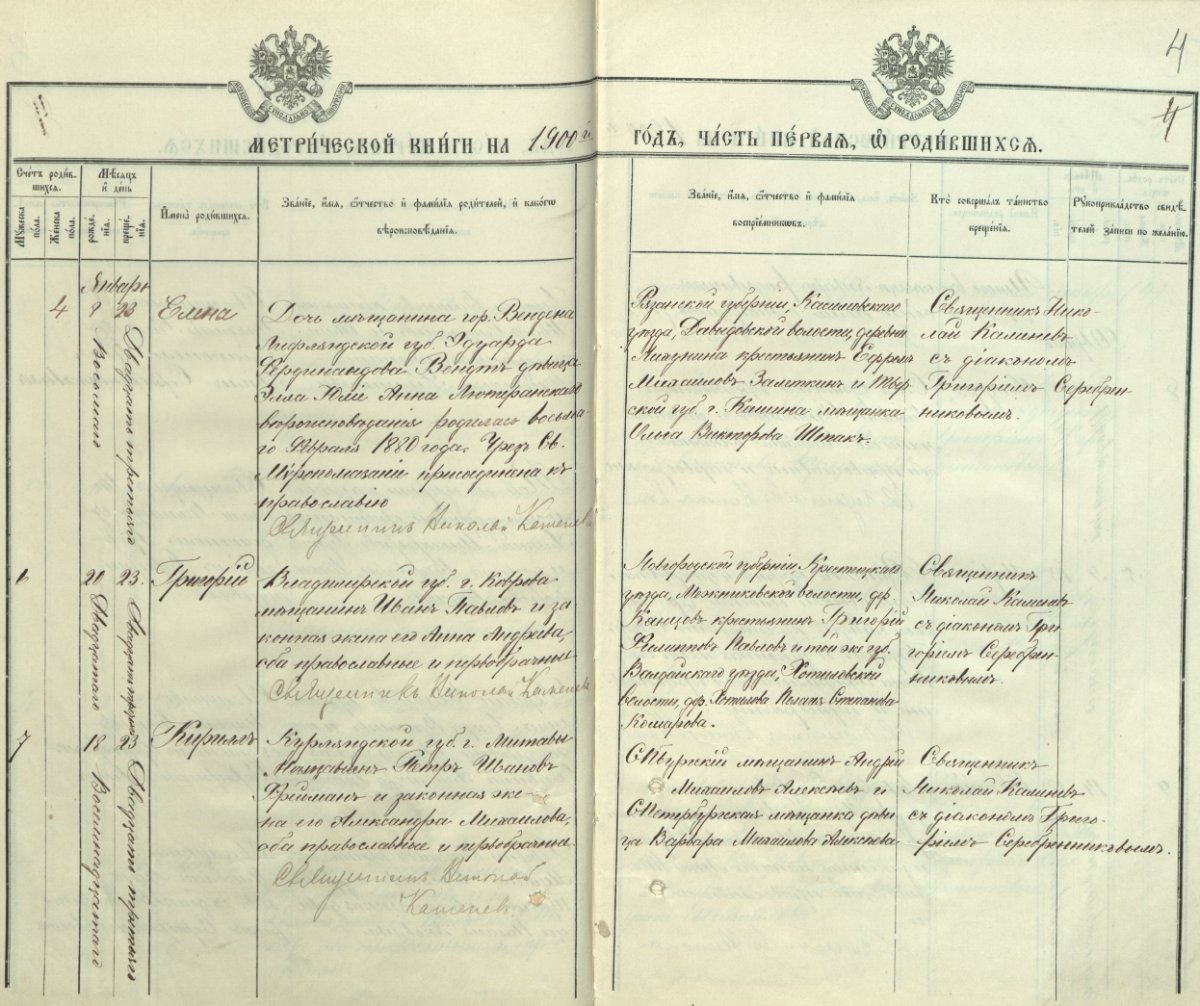 4
4
МЕТРИ́ЧЕСКОЙ КНИ́ГИ НА 1900й
ГО́ДЪ, ЧА́СТЬ ПЕ́РВАЯ, Ѿ РОДИ́ВШИХСѦ.
Сче́тъ роди́в-
шихсѧ.
Мꙋ́жеска
по́ла.
Же́нска
по́ла.
Мѣ́сѧцъ
и҆ де́нь
рожде́-
нїѧ.
креще́-
нїѧ.
И҆мена̀ роди́вшихсѧ.
Зва́нїе, и҆́мѧ, ѻ҆́тчество и҆ фами́лїѧ роди́телей, и҆ како́гѡ
вѣроисповѣ́данїѧ.
Зва́нїе, и҆́мѧ, ѻ҆́тчество и҆ фами́лїѧ
воспрїе́мниковъ.
Кто̀ соверша́лъ та́инство
креще́нїѧ.
Рꙋкоприкла́дство свидѣ́-
телей за́писи по жела́нїю.
Январь
4
8
Восьмаго
23
Двадцать третьяго
Елена
Дочь мѣщанина гор. Вендена
Лифляндской губ. Эдуарда
Фердинандова Вендтъ дѣвица
Элла Юлія Анна Лютеранскаго
вѣроисповѣданія родилась восьма-
го Февраля 1880 года. Чрезъ Св.
Мѵропомазаніе присоединена къ
православію
Священникъ Николай Каменевъ
Рязанской губерніи, Касимовскаго
уѣзда, Давыдовской волости, деревни
крестьянинъ Ефремъ
Михаиловъ Залеткинъ и Твер-
ской губ. г. Кашина мѣщанка
Ольга Викторова Штакъ.
Священникъ Нико-
лай Каменевъ
съ діакономъ
Григоріемъ Серебрен-
никовымъ.
6
20
Двадцатаго
23.
Двадцать третьяго
Григорій
Владимірской губ. г. Коврова
мѣщанинъ Иванъ Павловъ и за-
конная жена его Анна Андреева,
оба православные и первобрачные
Священникъ Николай Каменевъ
Новгородской губерніи, Крестецкаго
уѣзда, волости, др.
крестьянинъ Григорій
Филипповъ Павловъ и той же губ.
Валдайскаго уѣзда, Хотиловской
волости, дер. Хотилова Степанова
Комарова.
Священникъ
Николай Каменевъ
съ діакономъ Гри-
горіемъ Серебрен-
никовымъ.
7
18
Восемнадцатаго
23
Двадцать третьяго
Кириллъ
Курляндской губ. г. Митавы
Мѣщанинъ Петръ Ивановъ
Фрейманъ и законная же-
на его Александра Михаилова,
оба православные и первобрачные.
Священникъ Николай
Каменев.
СПбургскій мѣщанинъ Андрей
Михаиловъ Алексѣевъ и
СПетербургская мѣщанка дѣви-
ца Варвара Михаилова Алексѣева
Священникъ
Николай Каменевъ
съ діакономъ Григо-
ріемъ Серебренниковымъ.